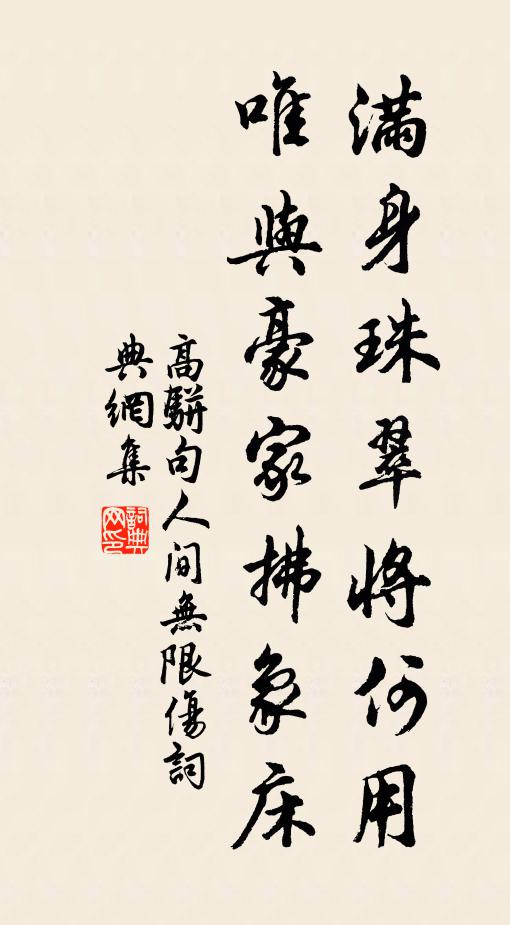 滿身珠翠將何用
唯與豪家拂象床
高駢句人间無限傷詞
典網集
詞典网印